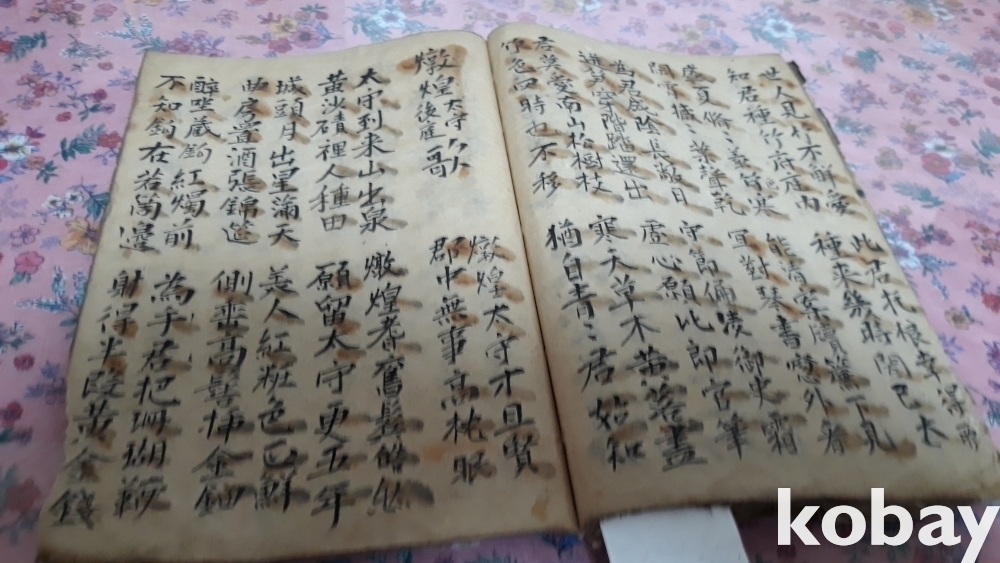 世人見竹不解愛
知君種竹府庭內
此君托根幸得所
種來幾時聞已大
盛夏翛〻叢皆寒
閑宵摵〻葉聲乾
能清案牘簾下見
宜對琴書窓外看
為君成陰長蔽日
迸笋穿階踏還出
守節偏凌御史霜
虛心願比郎官筆
君莫愛南山松樹枝
竹色四時也不移
寒天草木黃落盡
猶自青〻君始知
燉煌太守後庭歌
燉煌太守才且賢
郡中無事高枕眠
太守到來山出泉
黃沙磧裡人種田
燉煌耆舊鬢皓然
願留太守更五年
城頭月出星滿天
曲房置酒張錦筵
美人紅粧色正鮮
側垂高髻插金鈿
醉坐藏鉤紅燭前
不知鉤在若箇邊
為手君把珊瑚鞭
射得半段黃金錢
kobay